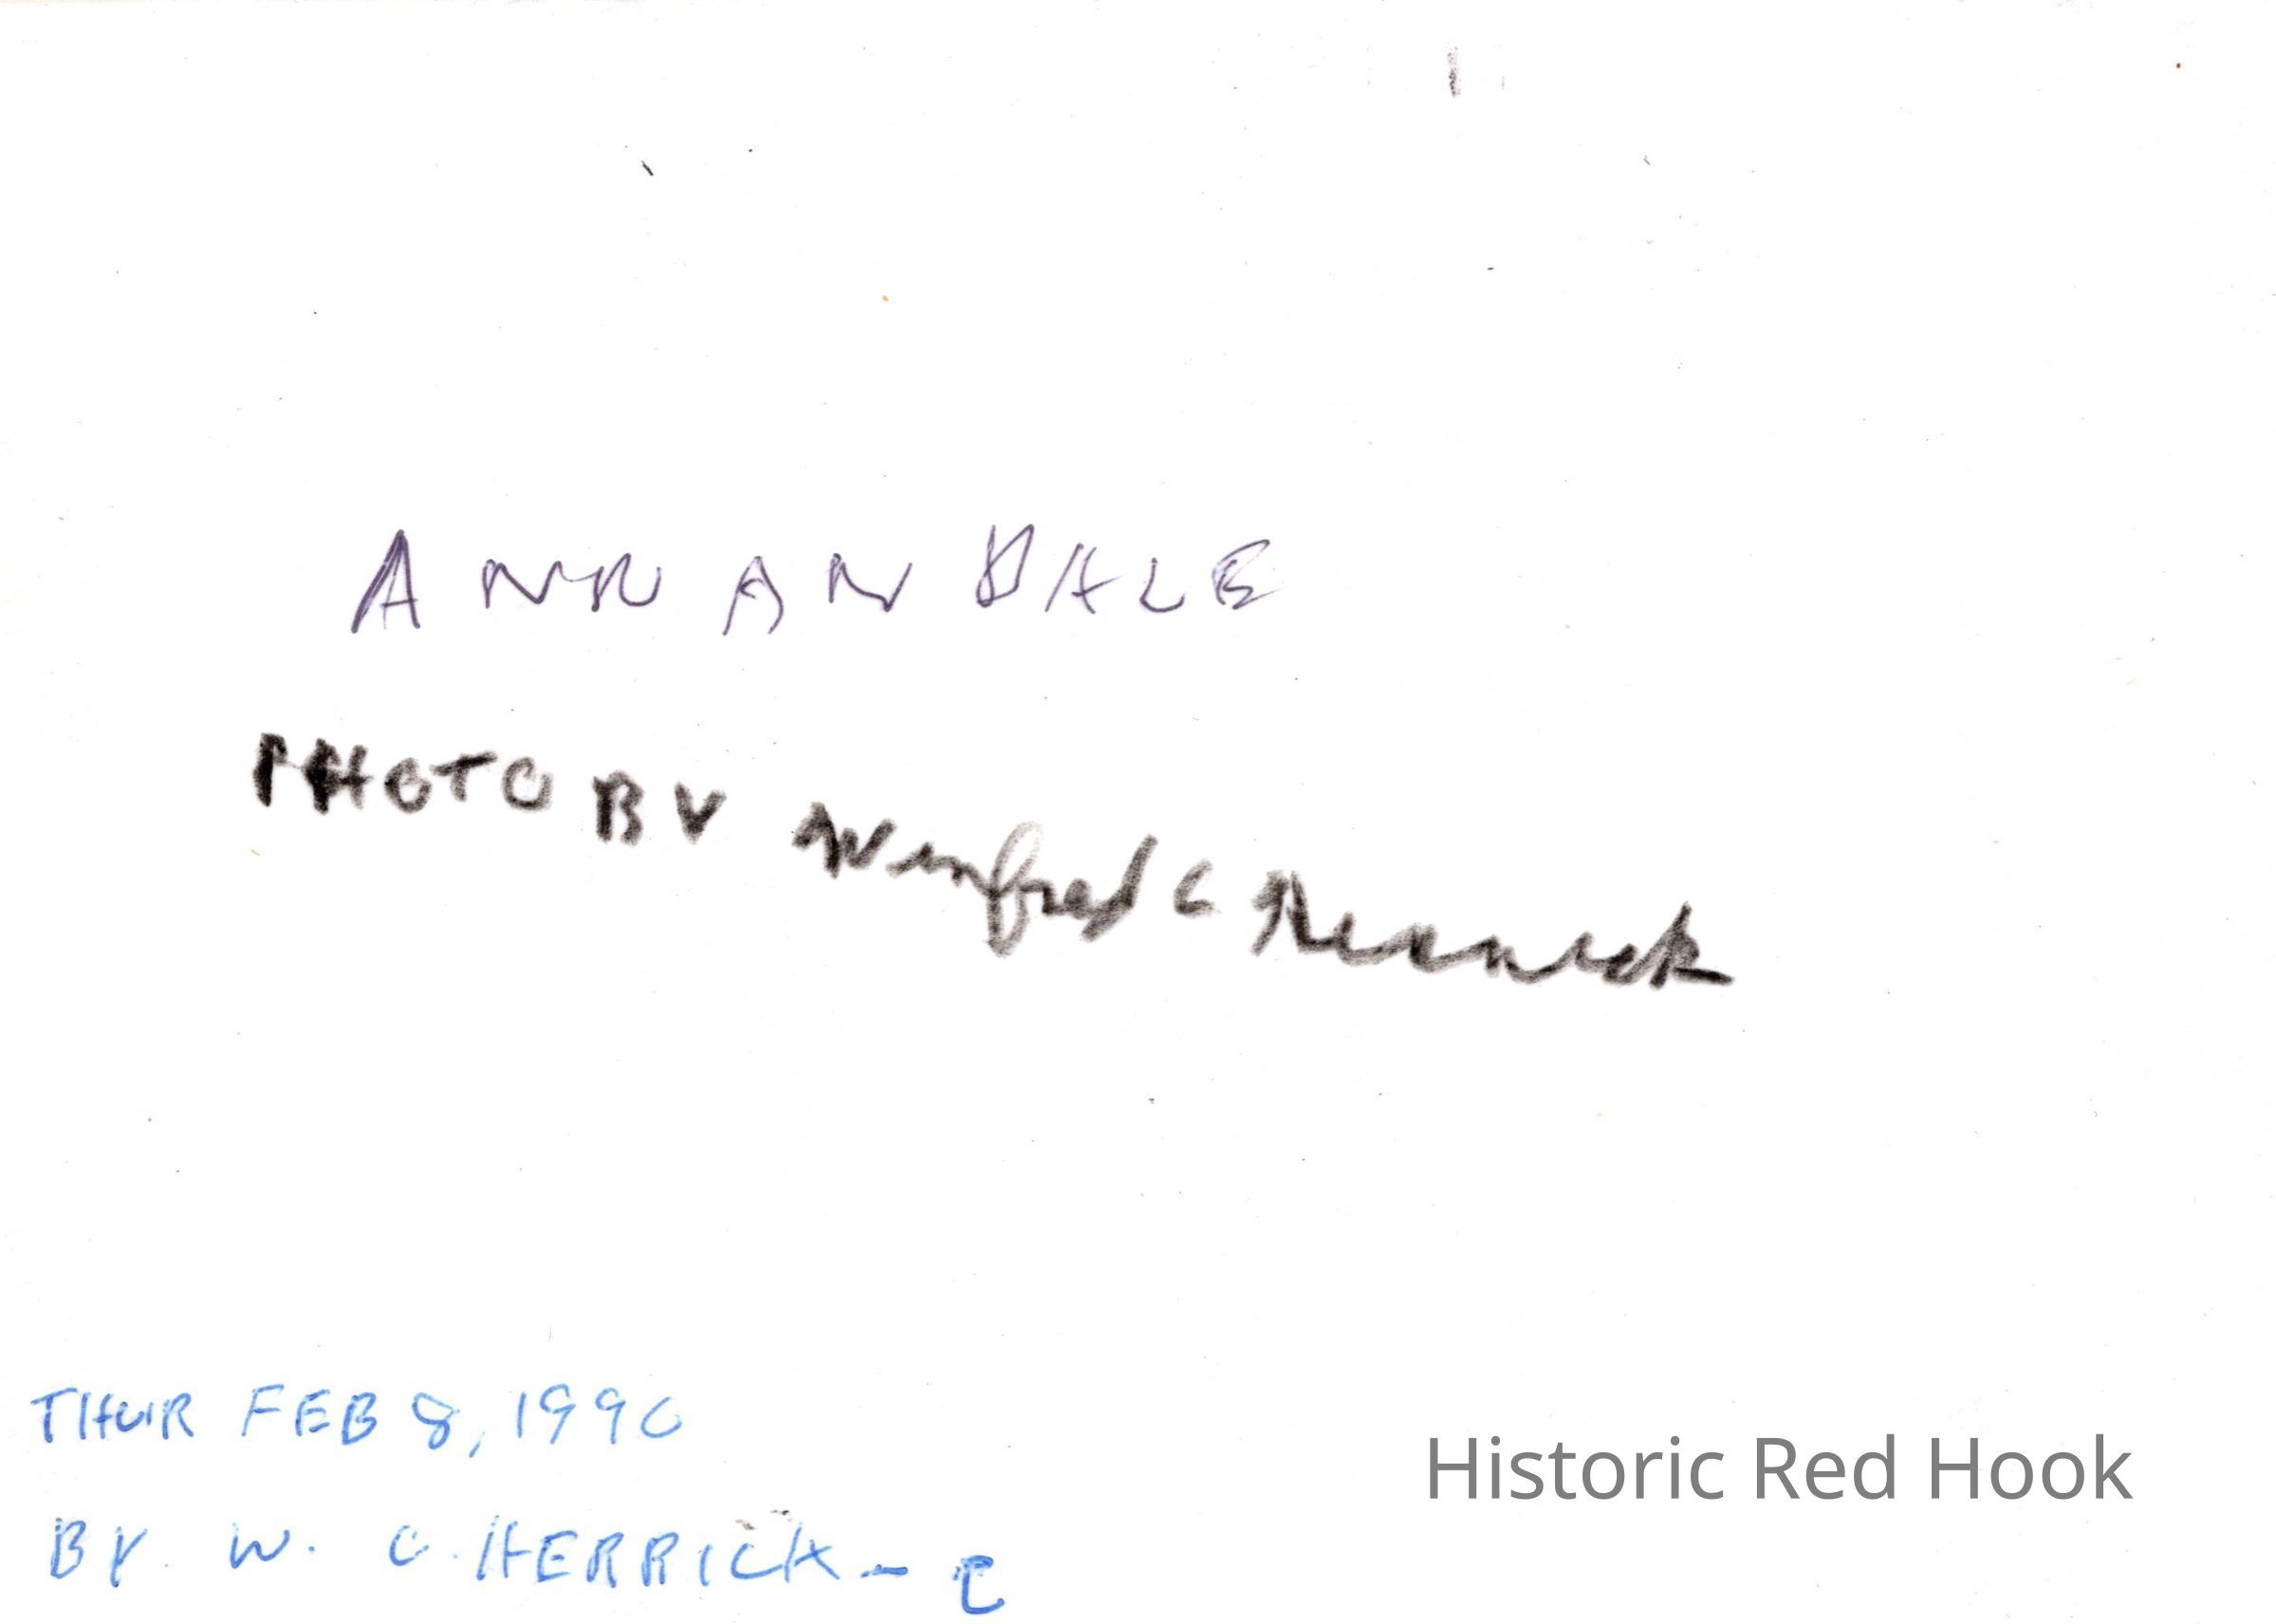 ANNANDALE
PHOTO BY Winfred C Herrick
THUR FEB 8, 1990
BY. W. C. HERRICK - E
Historic Red Hook